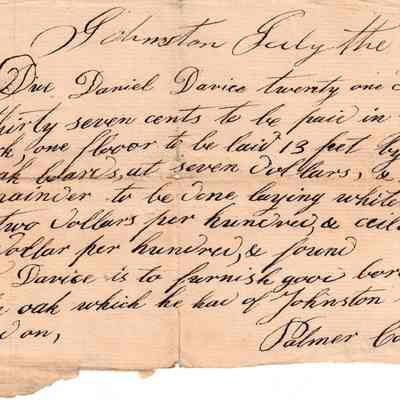 Johnston July the
Due Daniel Davice twenty one
thirty seven cents to be paid in
one floor to be laid 13 feet by
oak boards, at seven dollars, &
mainder to be done laying white
two dollars per hundred, & ceil
dollar per hundred, & found
Davice is to furnish good bor
oak which he hae of Johnston
on,
Palmer Co